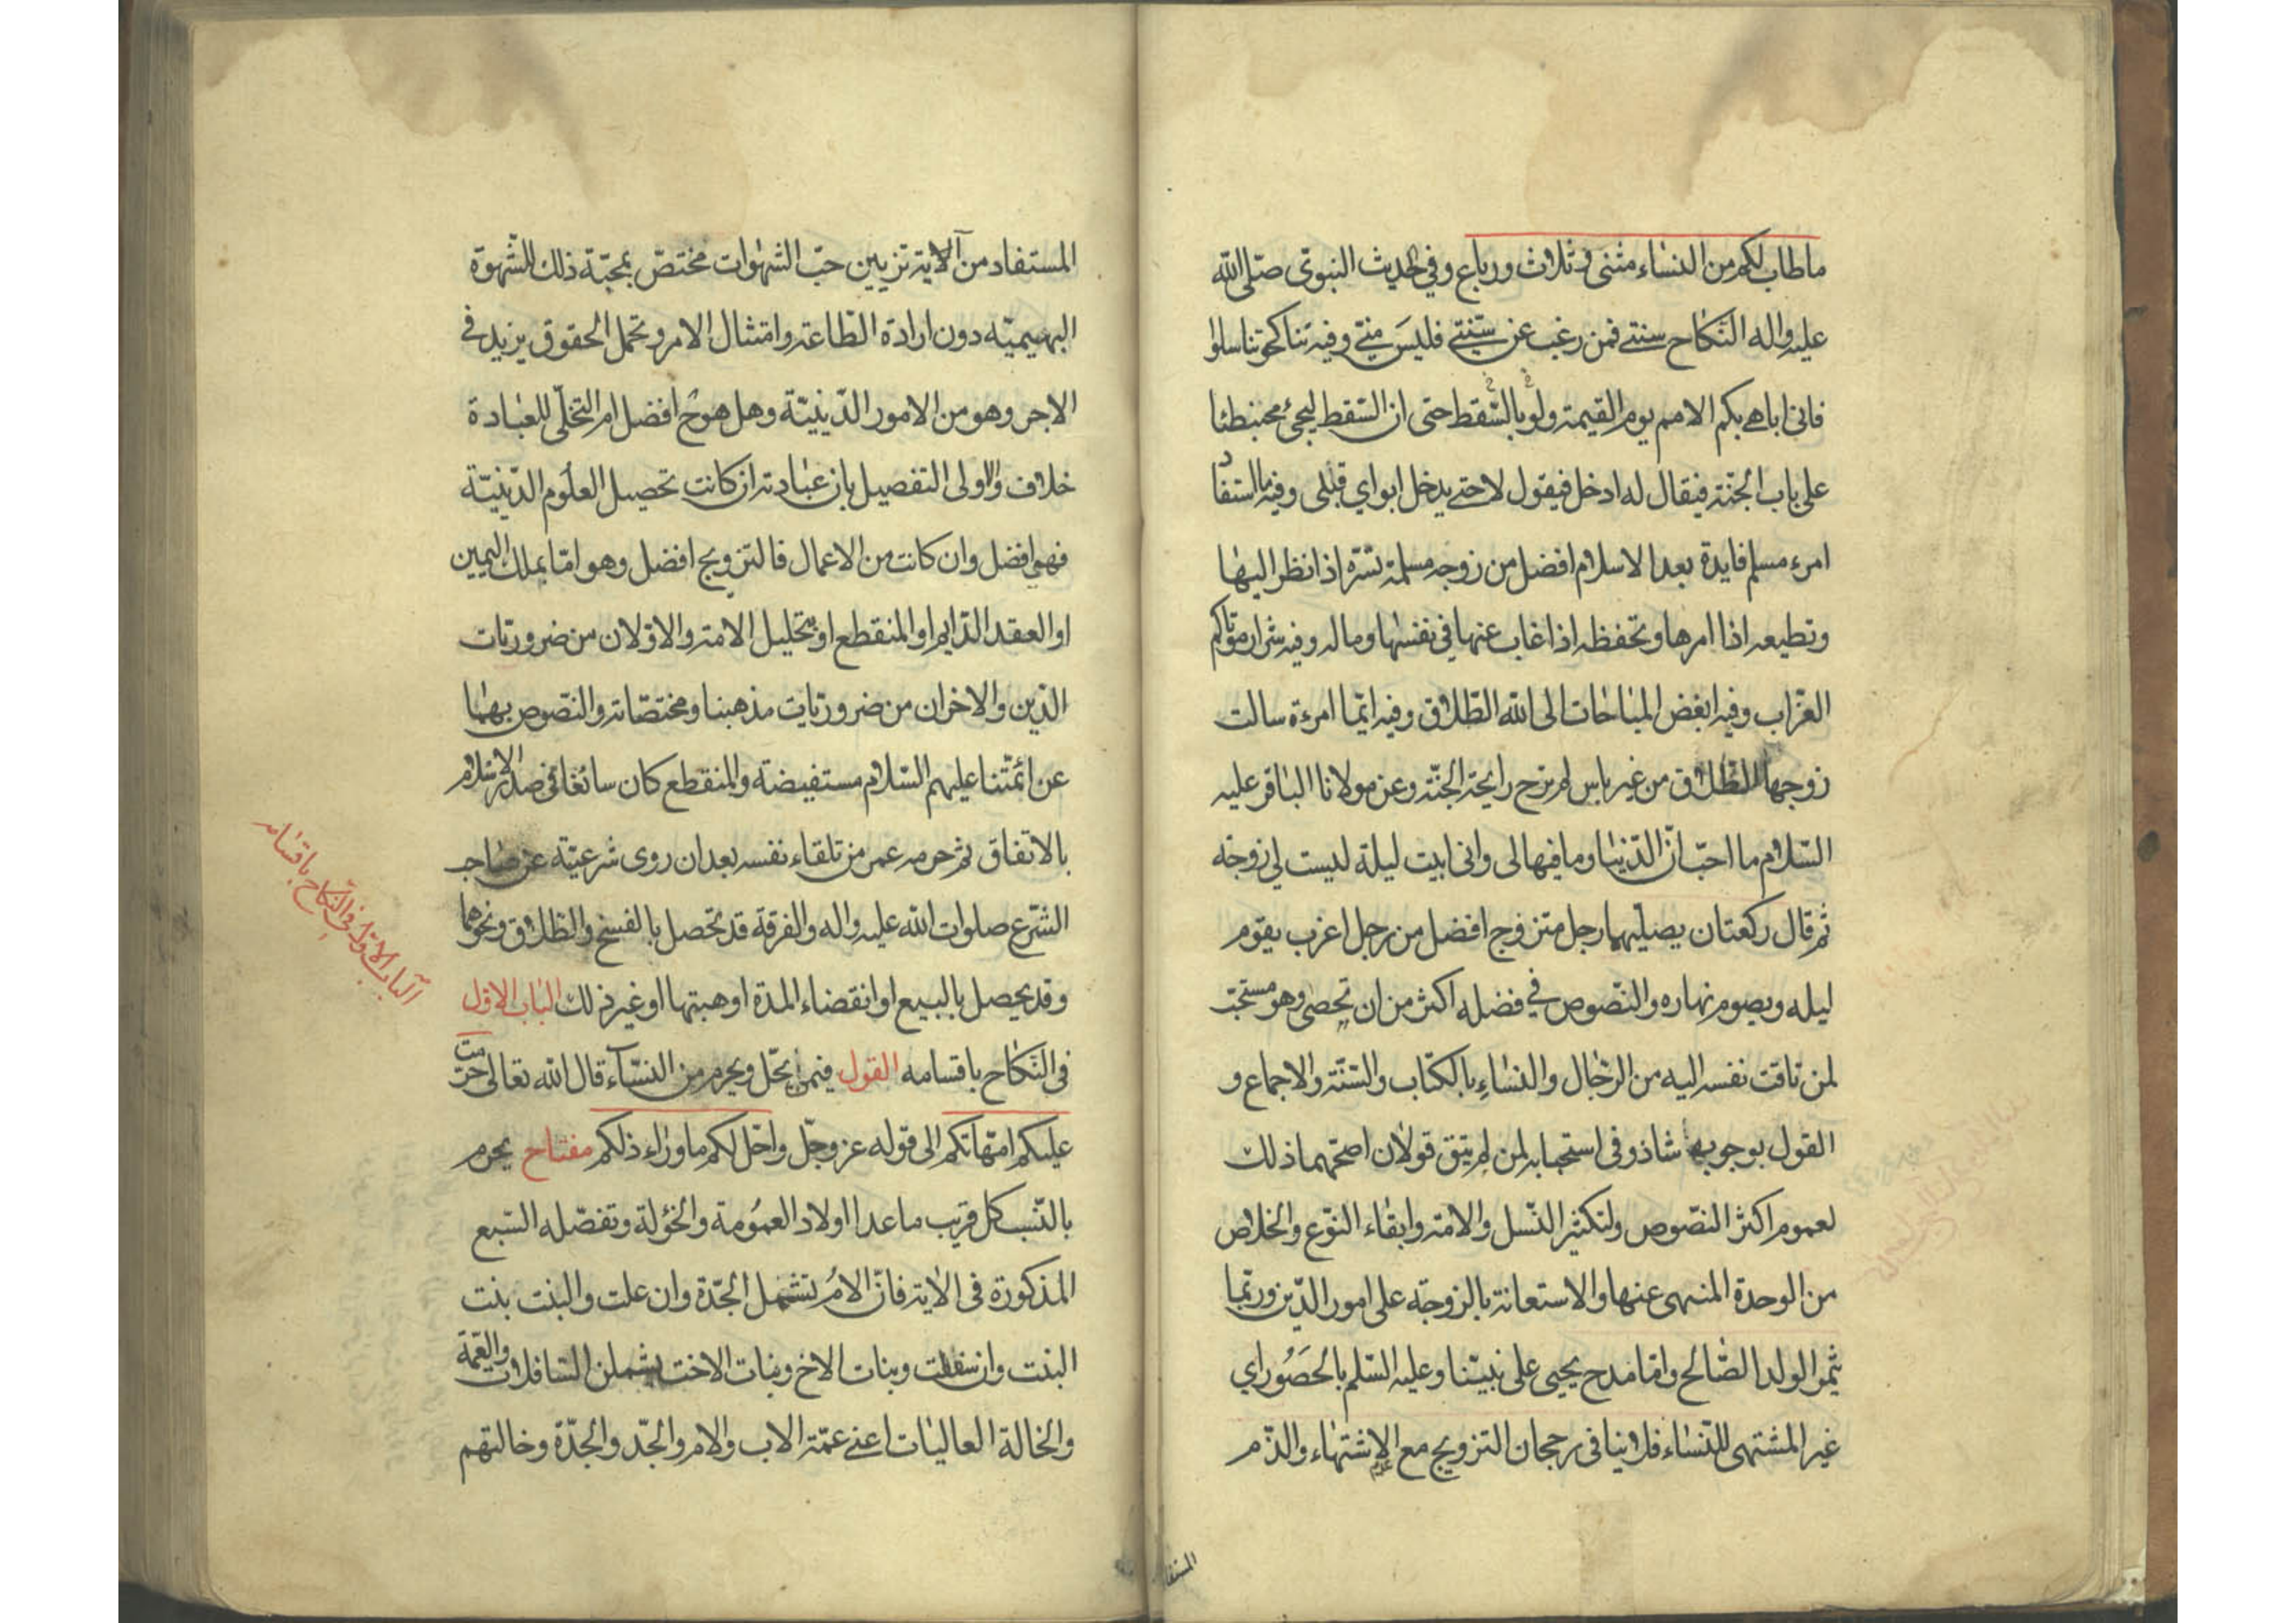 ماطاب لكم من النساء مثنى وثلاث ورباع وفي الحديث النبوي صلى الله
عليه واله النكاح سنتي فمن رغب عن سنتي فليس مني وفيه تناكحوا تناسلوا
فانى اباهي بكم الامم يوم القيمة ولو بالسقط حتى ان السقط ليجئ محبنطئا
على باب الجنة فيقال له ادخل فيقول لا حتى يدخل ابواي قبلى وفيه ما استفاد
امرء مسلم فايدة بعد الاسلام افضل من زوجة مسلمة تسره اذا نظر اليها
وتطيعه اذا امرها وتحفظه اذا غاب عنها في نفسها وماله وفيه شرار موتاكم
العزاب وفيه ابغض المباحات الى الله الطلاق وفيه ايما امرءة سالت
زوجها الطلاق من غير باس لم ترح رايحة الجنة وعن مولانا الباقر عليه
السلام ما احب ان الدنيا وما فيها لى وانى ابيت ليلة ليست لي زوجة
ثم قال ركعتان يصليهما رجل متزوج افضل من رجل اعزب يقوم
ليله ويصوم نهاره والنصوص في فضله اكثر من ان تحصى وهو مستحب
لمن تاقت نفسه اليه من الرجال والنساء بالكتاب والسنة والاجماع و
القول بوجوبه شاذ وفى استحبابه لمن لم يتق قولان اصحهما ذلك
لعموم اكثر النصوص ولتكثير النسل والامة وابقاء النوع والخلاص
من الوحدة المنهى عنها والاستعانة بالزوجة على امور الدين وربما
يثمر الولد الصالح واما مدح يحيى على نبينا وعليه السلم بالحصور اي
غير المشتهى للنساء فلا ينافى رجحان التزويج مع الاشتهاء والذم
المستفاد من الاية تزيين حب الشهوات مختص بمحبة ذلك للشهوة
البهيمية دون ارادة الطاعة وامتثال الامر وتحمل الحقوق يزيد في
الاجر وهو من الامور الدينية وهل هو ح افضل ام التخلى للعبادة
خلاف والاولى التفصيل بان عبادته ان كانت تحصيل العلوم الدينية
فهي افضل وان كانت من الاعمال فالتزويج افضل وهو اما بملك اليمين
او العقد الدايم او المنقطع او بتحليل الامة والاولان من ضروريات
الدين والاخران من ضروريات مذهبنا ومختصاته والنصوص بهما
عن ائمتنا عليهم السلام مستفيضة والمنقطع كان سائغا في صدر الاسلام
بالاتفاق ثم حرمه عمر من تلقاء نفسه بعد ان روى شرعيته عن صاحب
الشرع صلوات الله عليه واله والفرقة قد تحصل بالفسخ والطلاق ونحوهما
وقد يحصل بالبيع او انقضاء المدة او هبتها او غير ذلك الباب الاول
فى النكاح باقسامه القول فيمن يحل ويحرم من النساء قال الله تعالى حرمت
عليكم امهاتكم الى قوله عز وجل واحل لكم ما وراء ذلكم مفتاح يحرم
بالنسب كل قريب ما عدا اولاد العمومة والخؤلة وتفصله السبع
المذكورة فى الاية فان الام تشمل الجدة وان علت والبنت بنت
البنت وان سفلت وبنات الاخ وبنات الاخت يشملن السافلات والعمة
والخالة العاليات اعنى عمة الاب والام والجد والجدة وخالتهم
الباب الاول في النكاح باقسامه
المستفاد